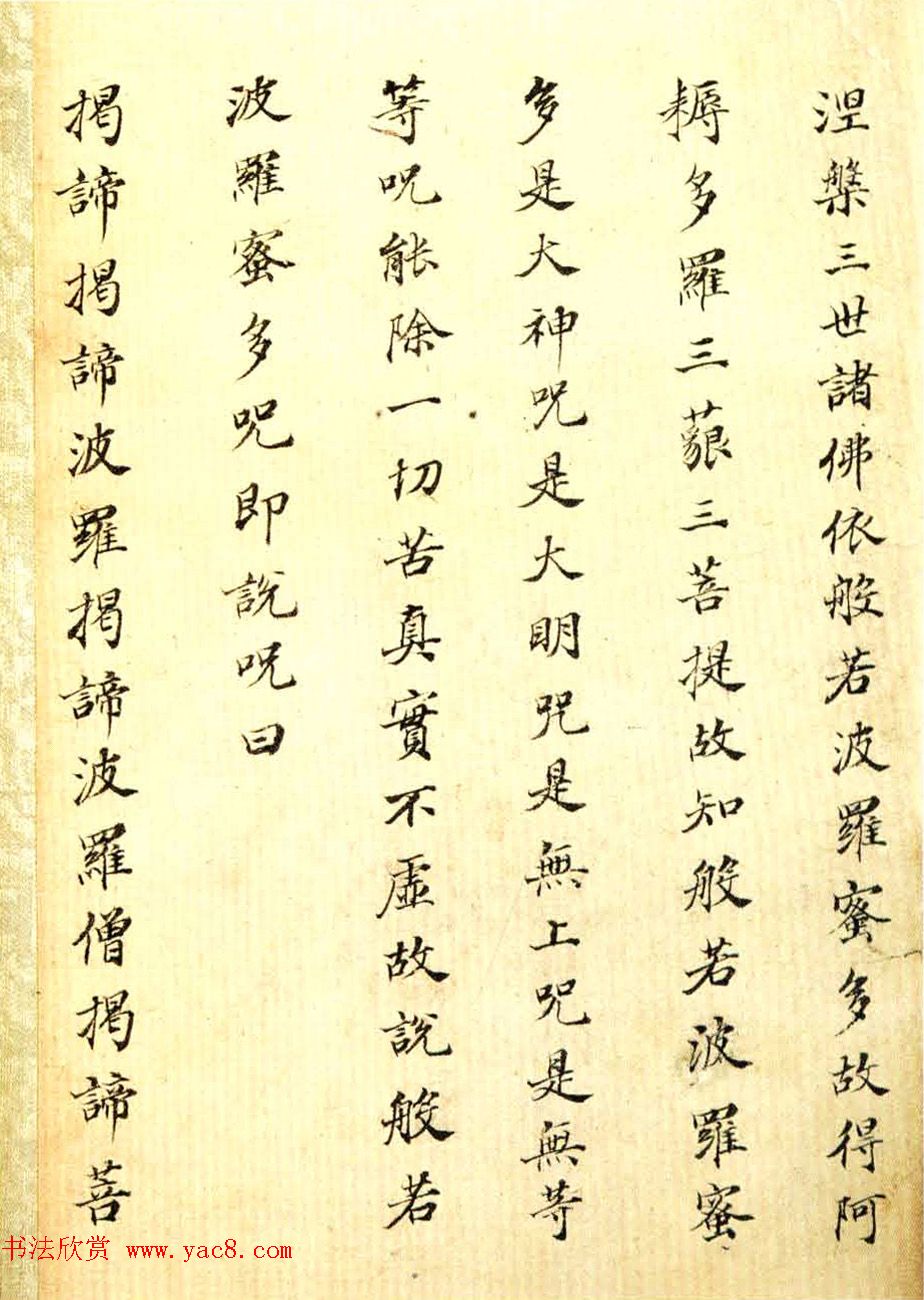 涅槃三世諸佛依般若波羅蜜多故得阿
耨多羅三藐三菩提故知般若波羅蜜
多是大神咒是大明咒是無上咒是無等
等咒能除一切苦真實不虛故說般若
波羅蜜多咒即說咒曰
揭諦揭諦波羅揭諦波羅僧揭諦菩
书法欣赏 www.yac8.com